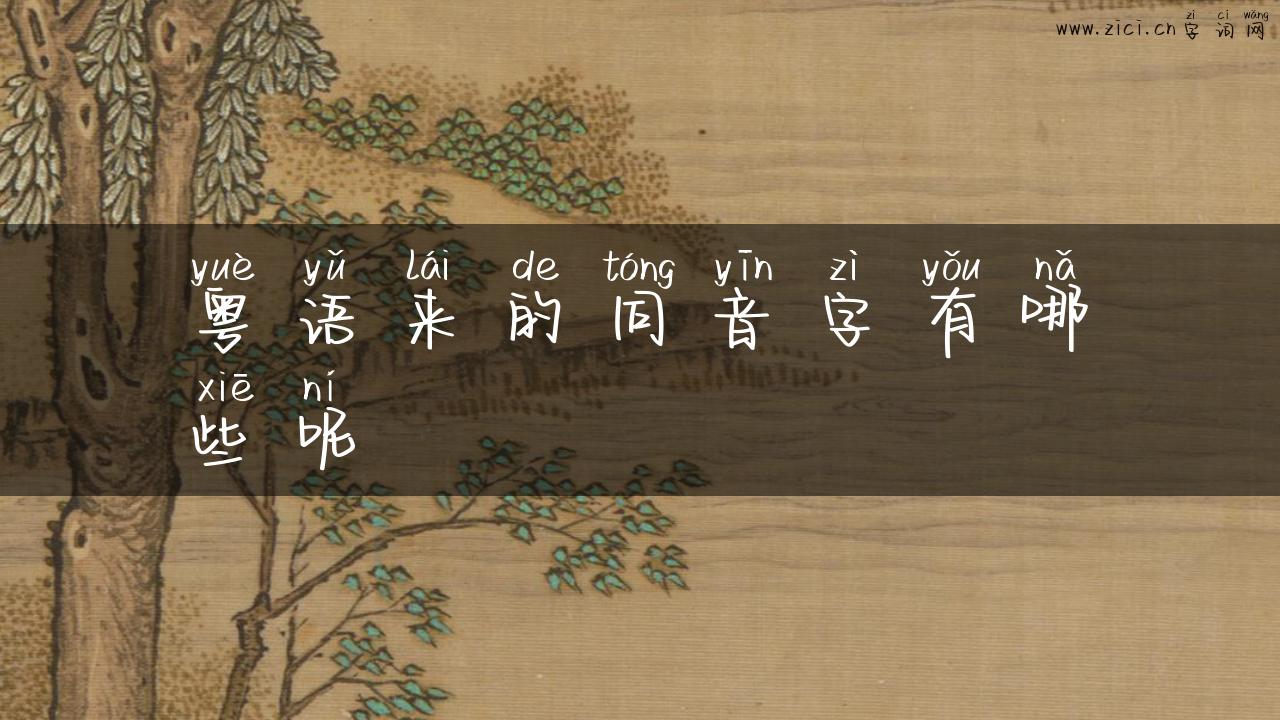 zì cí wǎng
www.zici.cn 字 词 网
yuè yǔ lái de tóng yīn zì yǒu nǎ
粤 语 来 的 同 音 字 有 哪
xiē ní
些 呢